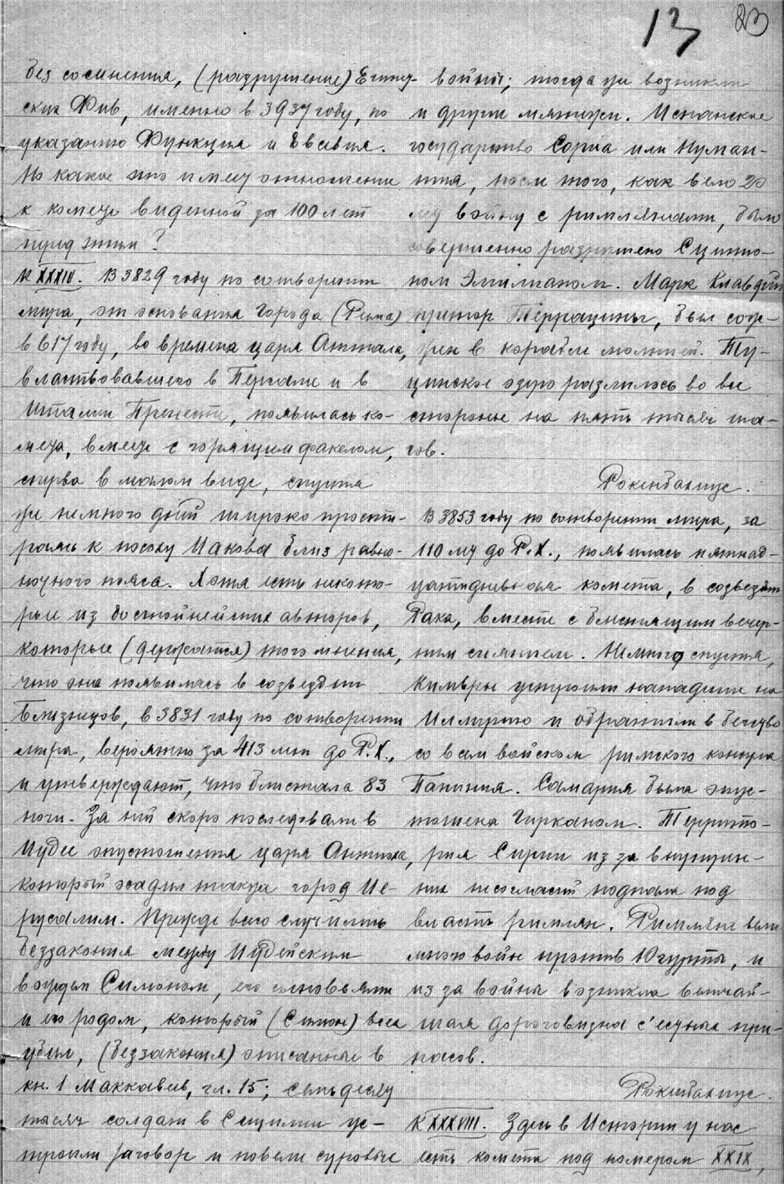 13 23
без сомнения, (разрушение) Егип-
ских Фив, именно в 3937 году, по
указанию Функция и Евсевия.
Но какое это имеет отношение
к комете виденной за 100 лет
перед этим?
К XXXIV. В 3829 году по сотворении
мира, от основания города (Рима)
в 617 году, во времена царя Аттала,
властвовавшего в Пергаме и в
Италии Пренесте, появилась ко-
мета, вместе с горящим факелом,
сперва в малом виде, спустя
же немного дней широко прости-
раясь к поясу близ равно-
ночного пояса. Хотя есть некото-
рые из достойнейших авторов,
которые (держатся) того мнения,
что она появилась в созвездии
Близнецов, в 3831 году по сотворении
мира, вероятно за 413 лет до Р.Х.,
и утверждают, что блистала 83
ночи. За ней скоро последовали в
Иудее опустошения царя Антиоха,
который осадил также город Ие-
русалим. Прежде всего случились
беззакония между Иудейским
вождем Симоном, его сыновьями
и его родом, который (Симон) весь
убил, (беззакония) описанные в
кн. 1 Маккавев, гл. 15; семьдесят
тысяч солдат в Сицилии ус-
троили заговор и повели суровые
войны; тогда же возникли
и другие мятежи. Испанское
государство Сориа или Нуман-
тия, после того, как вело 20
лет войну с римлянами, было
совершенно разрушено Сципио-
ном Эмилианом. Марк Клавдий
претор Террацины, был сож-
жен в корабле молнией. Ту-
цинское озеро разлилось во все
стороны на пять тысяч ша-
гов.
Рокенбахиус.
В 3853 году по сотворении мира, за
110 лет до Р.Х., появилась пятнад-
цатидневная комета, в созвездии
Рака, вместе с блестящим вечер-
ним сиянием. Немного спустя,
Кимвры устроили нападение на
Иллирию и обратили в бегство
со всем войском римского консула
Папиния. Самария была опус-
тошена Гирканом. Террито-
рия Сирии из за внутрен-
них несогласий подпала под
власть римлян. Римляне вели
много войн против Югурты, и
из за войны возникла величай-
шая дороговизна с'естных при-
пасов.
Рокенбахиус.
К XXXVIII. Здесь в Истории у нас
есть комета под номером XXIX,